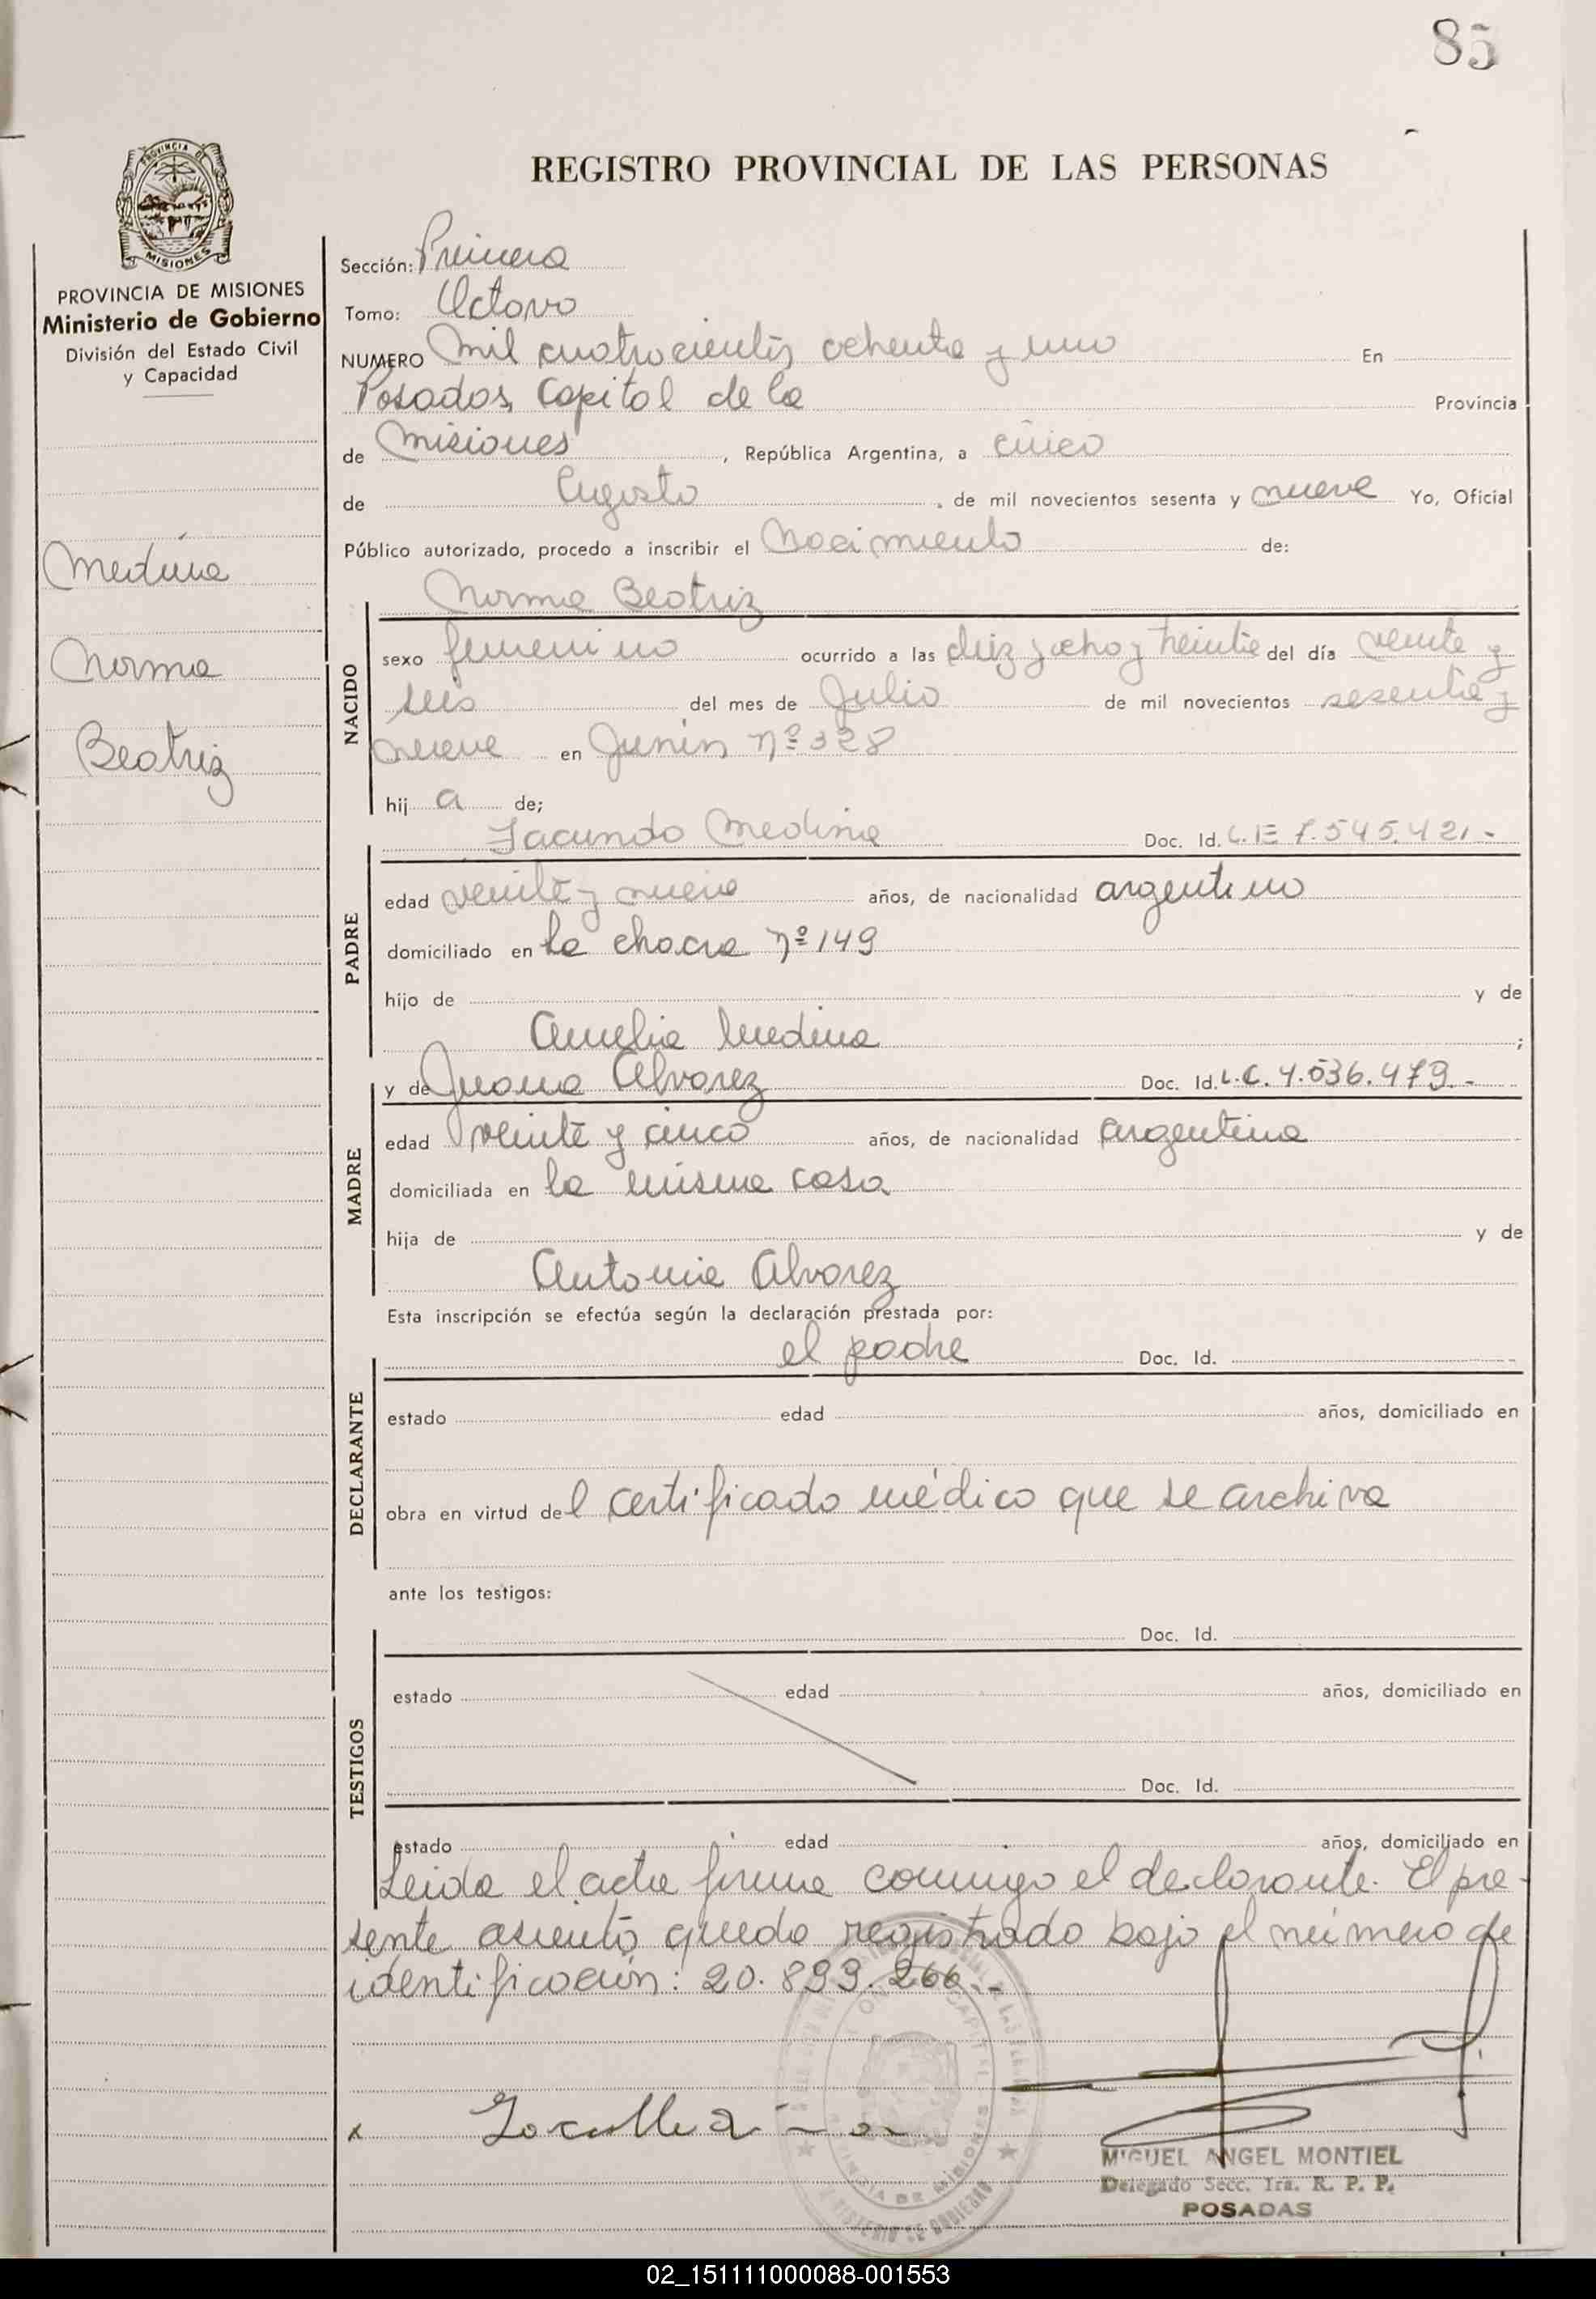 85
REGISTRO PROVINCIAL DE LAS PERSONAS
PROVINCIA DE MISIONES
MISIONES
PROVINCIA DE MISIONES
Ministerio de Gobierno
División del Estado Civil
y Capacidad
Medina
Norma
Beatriz
Sección: Primera
Tomo: Octavo
NUMERO Mil cuatrocientos ochenta y uno En
Posadas, Capital de la Provincia
de Misiones, República Argentina, a cinco
de Agosto, de mil novecientos sesenta y nueve Yo, Oficial
Público autorizado, procedo a inscribir el Nacimiento de:
Norma Beatriz
NACIDO
sexo femenino ocurrido a las diez y ocho y treinta del día veinte y
seis del mes de Julio de mil novecientos sesenta y
nueve en Junín nº 328
hij a de;
Facundo Medina Doc. Id. L.E 7.545.421.-
PADRE
edad veinte y nueve años, de nacionalidad argentino
domiciliado en la chacra nº 149
hijo de y de
Amelia Medina ;
y de Juana Alvarez Doc. Id. L.C. 4.036.479.-
MADRE
edad veinte y cinco años, de nacionalidad argentina
domiciliada en la misma casa
hija de y de
Antonia Alvarez
Esta inscripción se efectúa según la declaración prestada por:
el padre Doc. Id.
DECLARANTE
estado edad años, domiciliado en
obra en virtud del certificado médico que se archiva
ante los testigos:
Doc. Id.
TESTIGOS
estado edad años, domiciliado en
Doc. Id.
estado edad años, domiciliado en
Leida el acta firma conmigo el declarante. El pre-
sente asiento queda registrado bajo el número de
identificación: 20.899.266.-
x
MIGUEL ANGEL MONTIEL
Delegado Secc. 1ra. R. P. P.
POSADAS
02_151111000088-001553